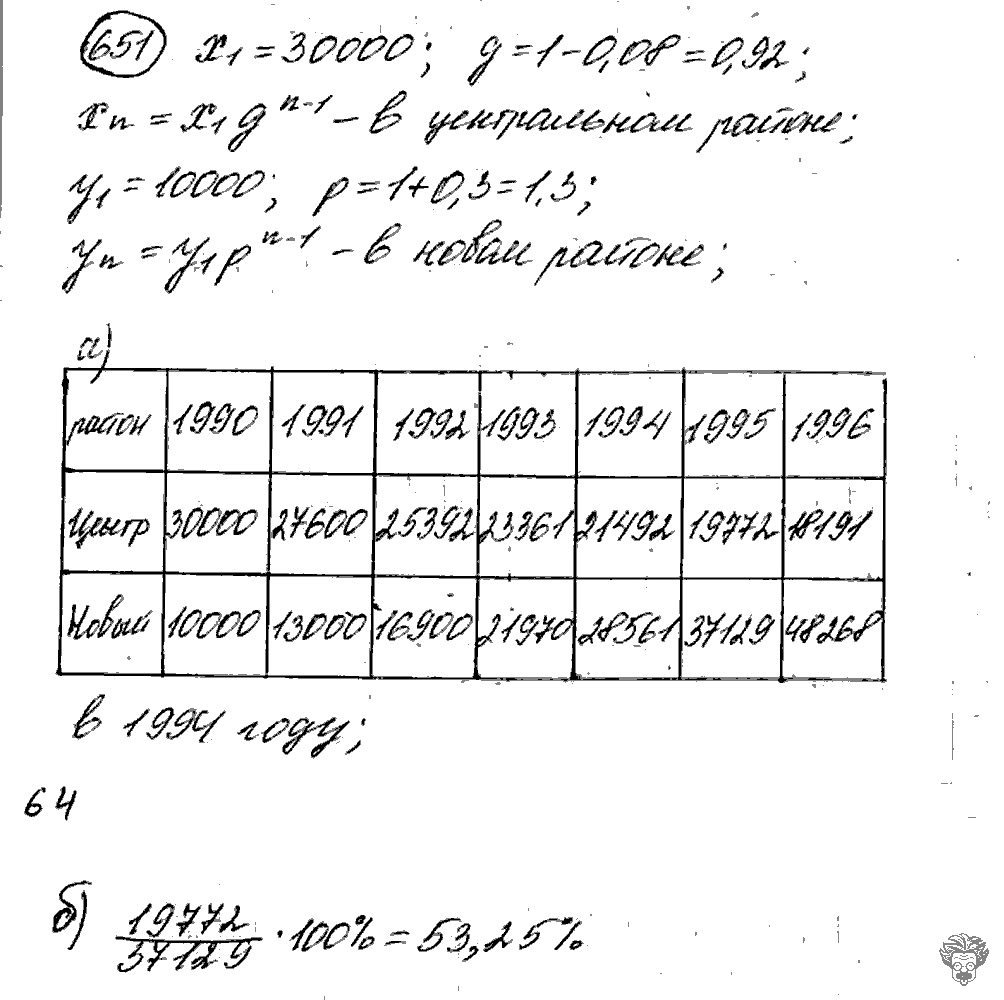 651 x₁ = 30000; g = 1 - 0,08 = 0,92;
xₙ = x₁ gⁿ⁻¹ - в центральном районе;
y₁ = 10000; p = 1 + 0,3 = 1,3;
yₙ = y₁ pⁿ⁻¹ - в новом районе;
а)
район 1990 1991 1992 1993 1994 1995 1996
Центр 30000 27600 25392 23361 21492 19772 18191
Новый 10000 13000 16900 21970 28561 37129 48268
в 1994 году;
64
б) 19772/37129 · 100% = 53,25%